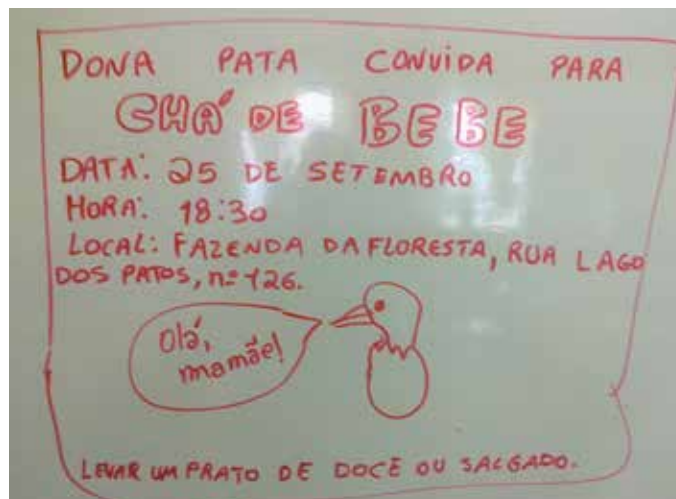 DONA PATA CONVIDA PARA
CHÁ DE BEBE
DATA: 25 DE SETEMBRO
HORA: 18:30
LOCAL: FAZENDA DA FLORESTA, RUA LAGO
DOS PATOS, nº 126.
Olá,
mamãe!
LEVAR UM PRATO DE DOCE OU SALGADO.